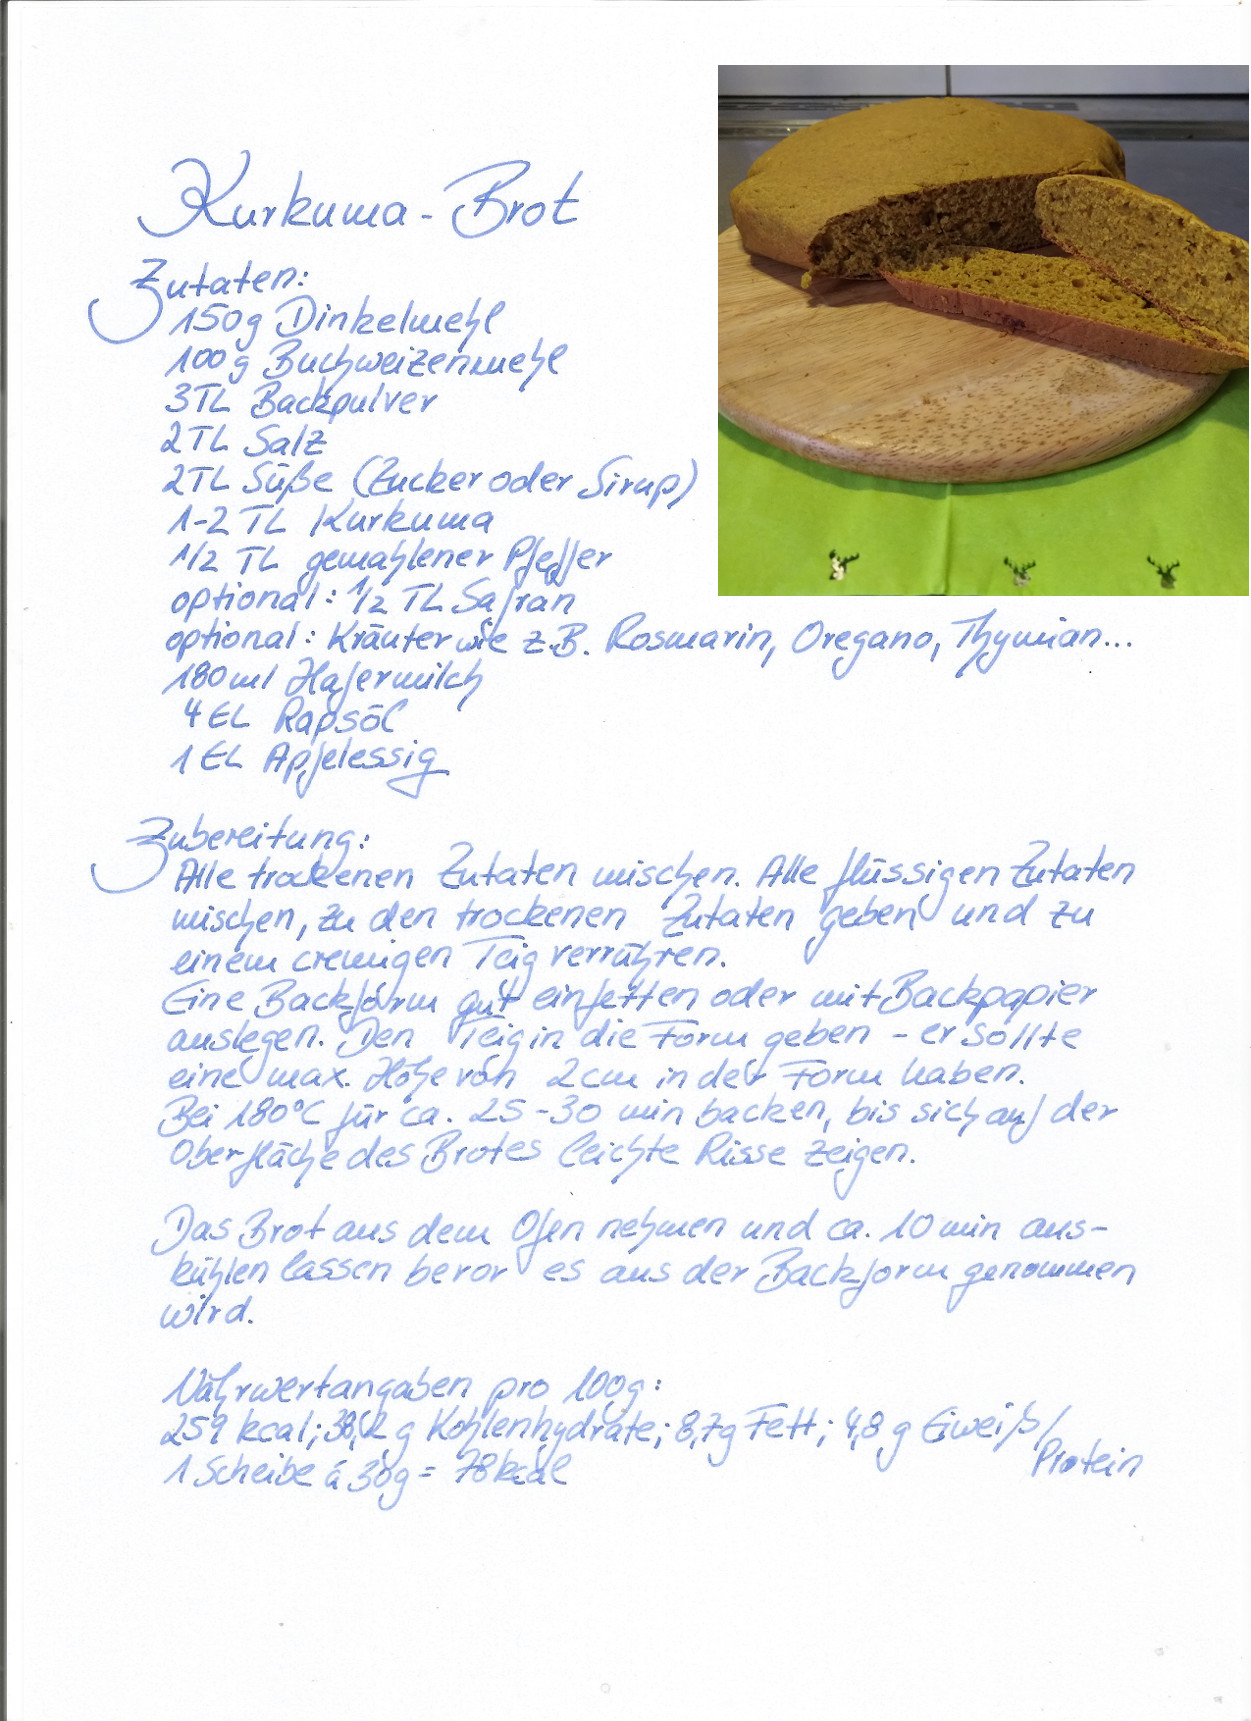 Kurkuma-Brot
Zutaten:
150g Dinkelmehl
100g Buchweizenmehl
3TL Backpulver
2TL Salz
2TL Süße (Zucker oder Sirup)
1-2 TL Kurkuma
1/2 TL gemahlener Pfeffer
optional: 1/2 TL Safran
optional: Kräuter wie z.B. Rosmarin, Oregano, Thymian...
180ml Hafermilch
4EL Rapsöl
1EL Apfelessig
Zubereitung:
Alle trockenen Zutaten mischen. Alle flüssigen Zutaten
mischen, zu den trockenen Zutaten geben und zu
einem cremigen Teig verrühren.
Eine Backform gut einfetten oder mit Backpapier
auslegen. Den Teig in die Form geben - er sollte
eine max. Höhe von 2cm in der Form haben.
Bei 180°C für ca. 25-30 min backen, bis sich auf der
Oberfläche des Brotes leichte Risse zeigen.
Das Brot aus dem Ofen nehmen und ca. 10 min aus-
kühlen lassen bevor es aus der Backform genommen
wird.
Nährwertangaben pro 100g:
259 kcal; g Kohlenhydrate; 8,7g Fett; 4,8 g Eiweiß/
Protein
1 Scheibe á 30g = 78kcal